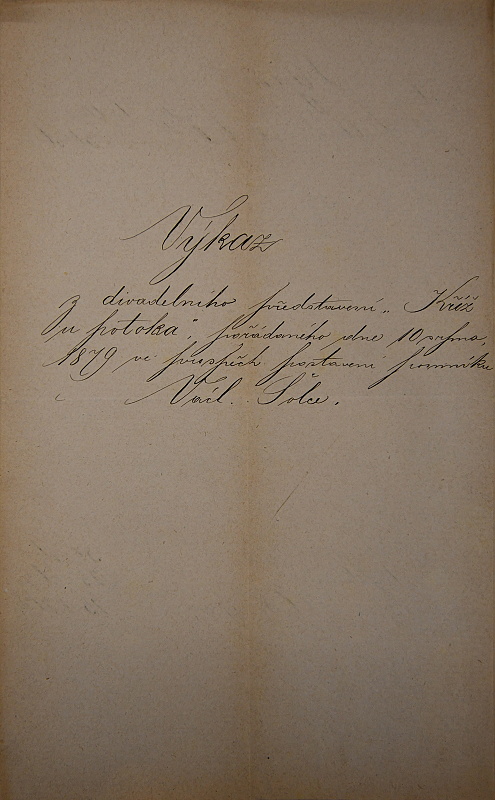 Výkaz
z divadelního představení „Kříž
u potoka“, pořádaného dne 10 srpna
1879 ve prospěch postavení pomníku
Václ. Šolce.